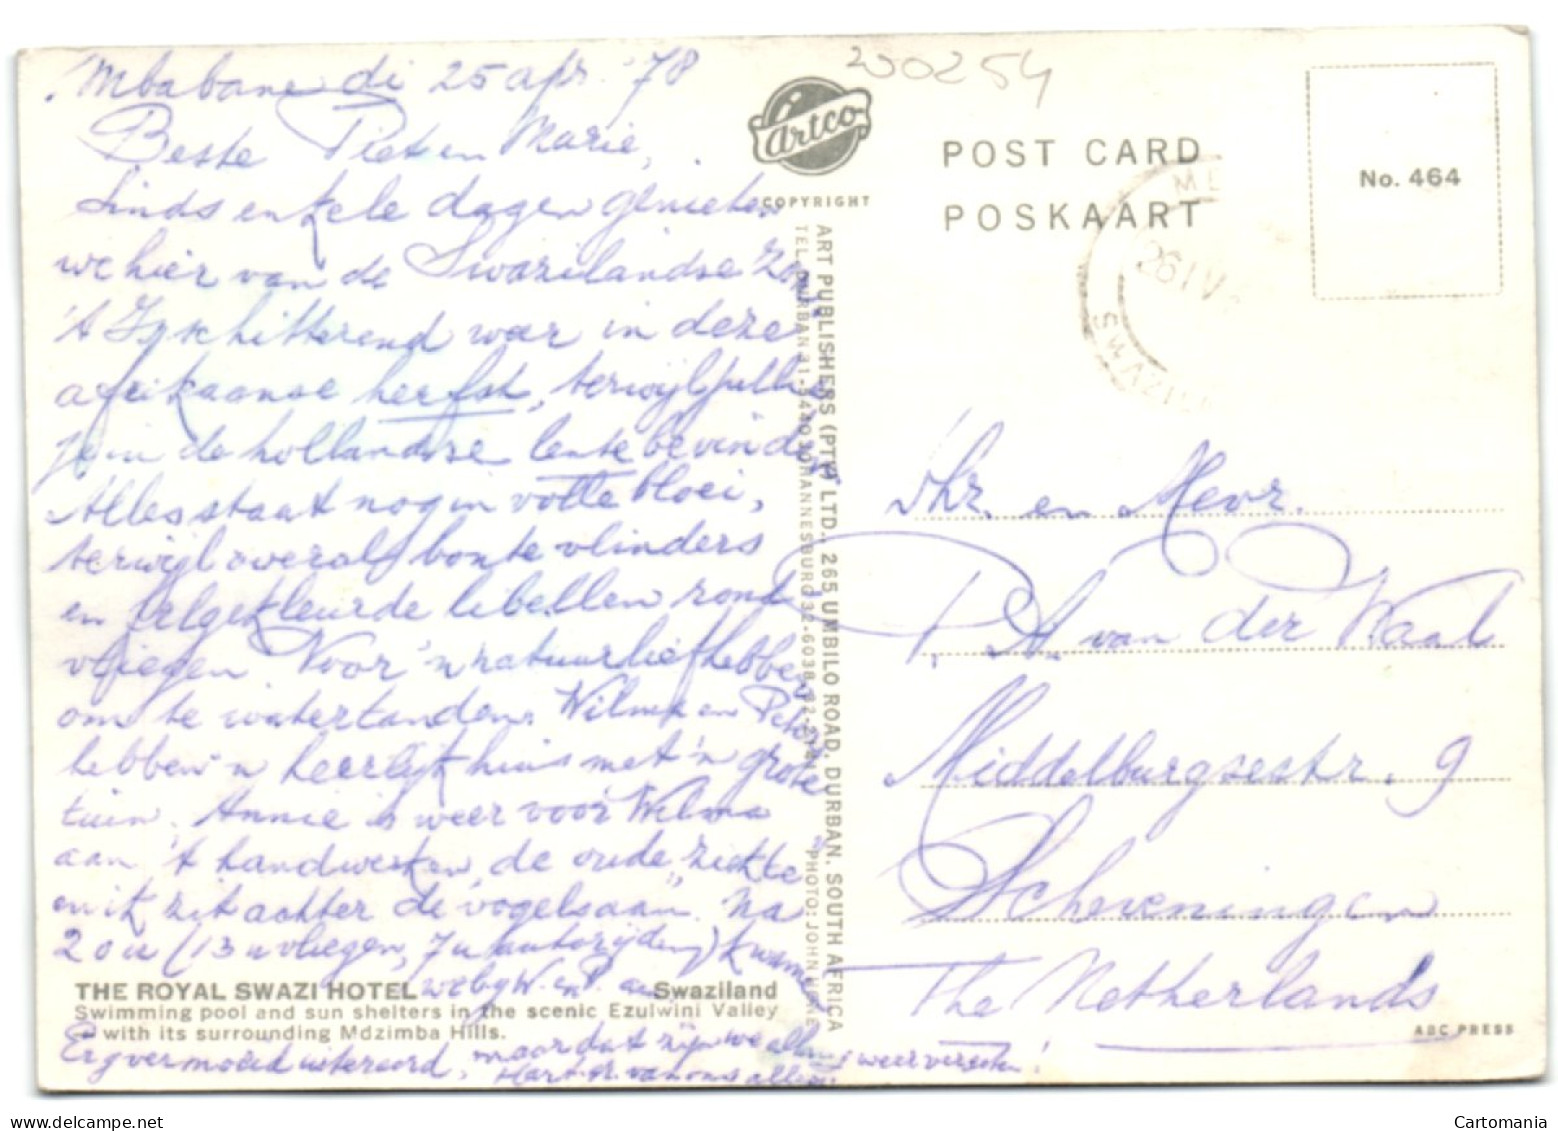 Mbabane di 25 apr. '78
Beste Piet en Marie,
Sinds enkele dagen genieten
we hier van de Swazilandse zon.
't Is schitterend weer in deze
afrikaanse herfst, terwijl jullie
je in de hollandse lente bevinden
Alles staat nog in volle bloei,
terwijl overal bonte vlinders
en felgekleurde libellen rond
vliegen. Voor 'n natuurliefhebber
om te watertanden. Wilma en Peter
hebben 'n heerlijk huis met 'n grote
tuin. Annie is weer voor Wilma
aan 't handwerken, de oude "ziekte"
en ik zit achter de vogels aan. Na
20 u (13 u vliegen, 7 u autorijden) kwamen
we by W. en P. aan.
Erg vermoeid uiteraard, maar dat zijn we allang weer vergeten!
Hart. gr. van ons allen.
THE ROYAL SWAZI HOTEL Swaziland
Swimming pool and sun shelters in the scenic Ezulwini Valley
with its surrounding Mdzimba Hills.
200254
Artco
COPYRIGHT
ART PUBLISHERS (PTY) LTD., 265 UMBILO ROAD, DURBAN, SOUTH AFRICA
TEL. DURBAN 31- JOHANNESBURG 32-6038
PHOTO: JOHN
POST CARD
POSKAART
No. 464
26 IV
SWAZIL
Dhr. en Mevr.
P. A. van der Waal
Middelburgsestr. 9
Scheveningen
The Netherlands
ABC PRESS
www.delcampe.net
Cartomania